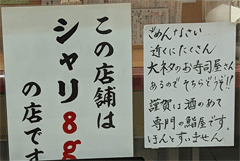 この店舗は
シャリ8g
の店です
ごめんなさい
近くにたくさん
大ネタのお寿司屋さん
あるのでそちらどうぞ!!
謹賀は酒のあて
専門の鮨屋です。
ほんとすいません